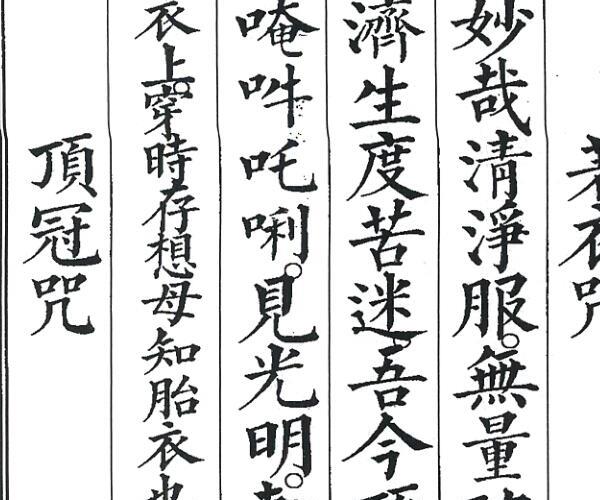 著衣咒
妙哉清淨服。無量
濟生度苦迷。吾今
唵吽吒唎。見光明。
衣上。穿時存想母如胎衣也
頂冠咒